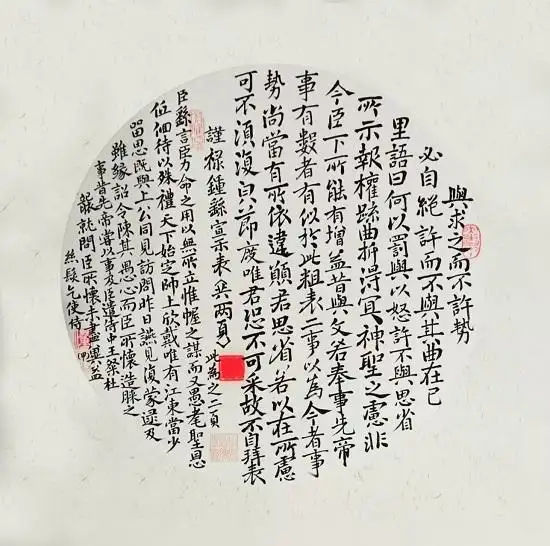 與求之而不許勢
必自絕許而不與其曲在己
里語曰何以罰與以怒許不與思省
所示報權疏曲折得冝神聖之慮非
今臣下所能有增益昔與文若奉事先帝
事有數者有似於此粗表二事以為今者事
勢尚當有所依違願君思省若以在所慮
可不須復皃節度唯君恐不可采故不自拜表
謹標鍾繇宣示表共兩頁 此為之二頁
臣繇言臣力命之用以無所立惟幄之謀而又愚耄聖恩
低佪待以殊禮天下始定師土欣戴唯有江東當少
留思既與上公同見訪問昨日疏見復蒙逮及
雖緣詔令陳其愚心而臣所懷造膝之
事昔先帝嘗以事及臣遣侍中王粲杜
襲就問臣所懷未盡輿益
絲髮乞使侍